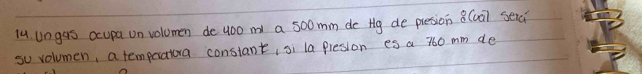 14. Un gas ocupa un volumen de 400 ml a 500 mm de Hg de presion ¿Cuál será
su volumen, a temperatura constante, si la presion es a 760 mm de